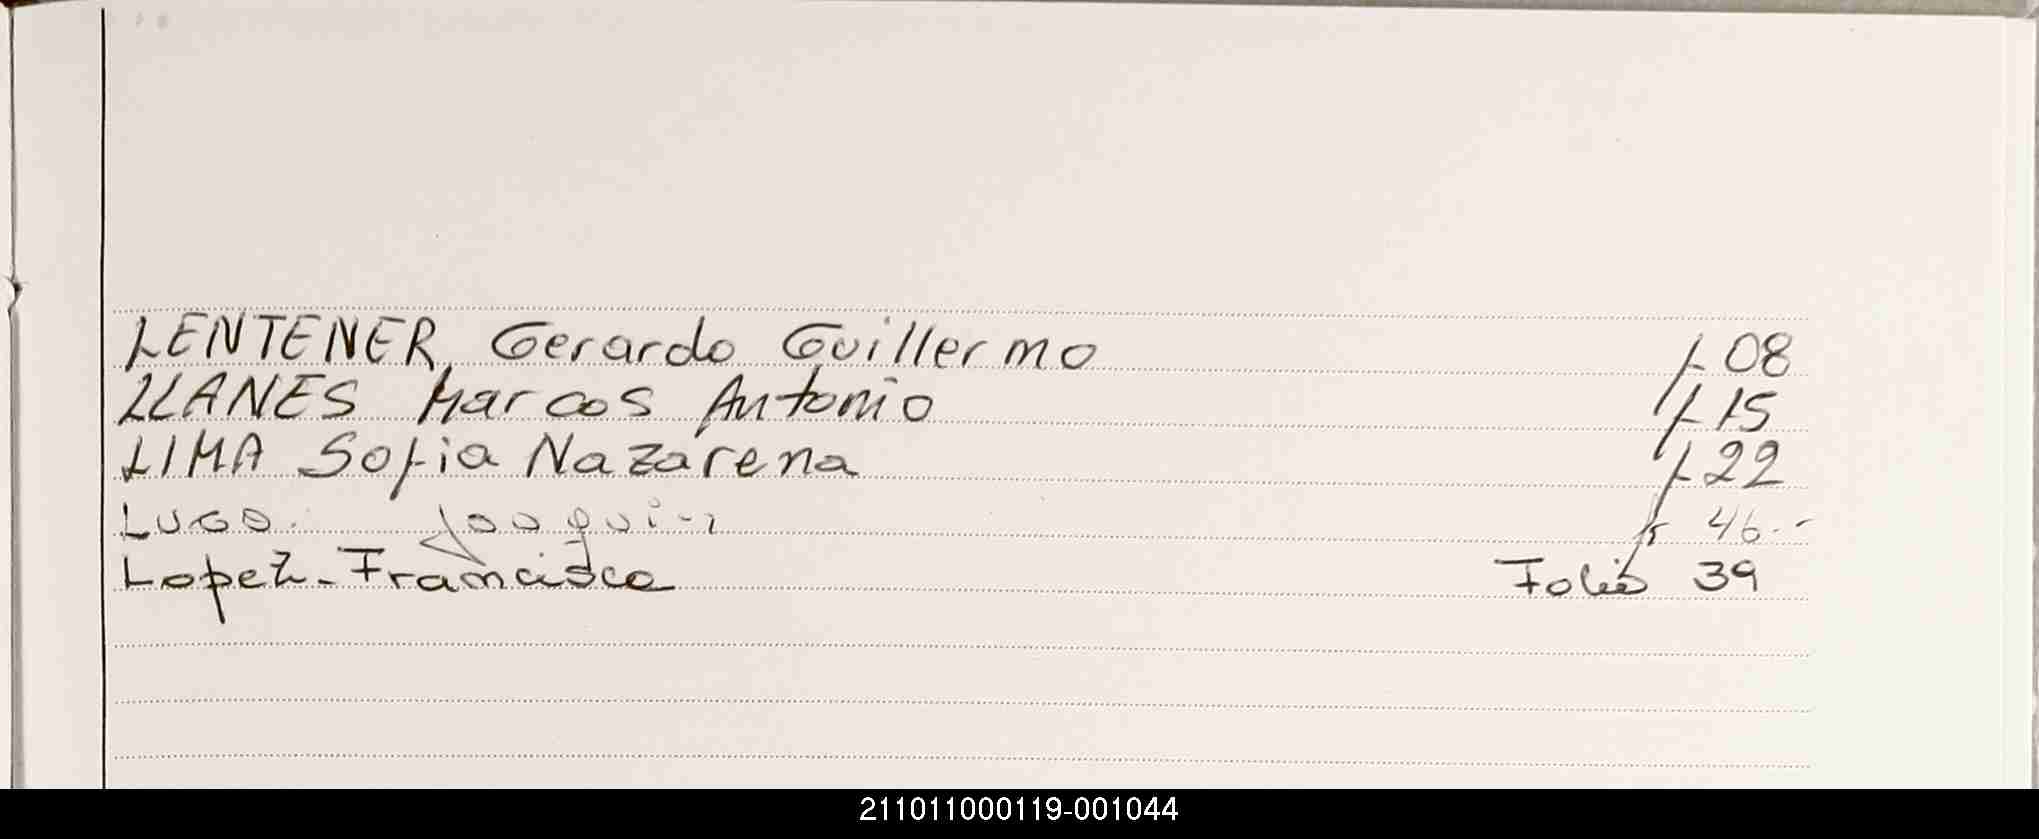 LENTENER Gerardo Guillermo f 08
LLANES Marcos Antonio f 15
LIMA Sofia Nazarena f 22
LUGO. Joaquin f 46.-
Lopez - Francisco Folio 39
211011000119-001044